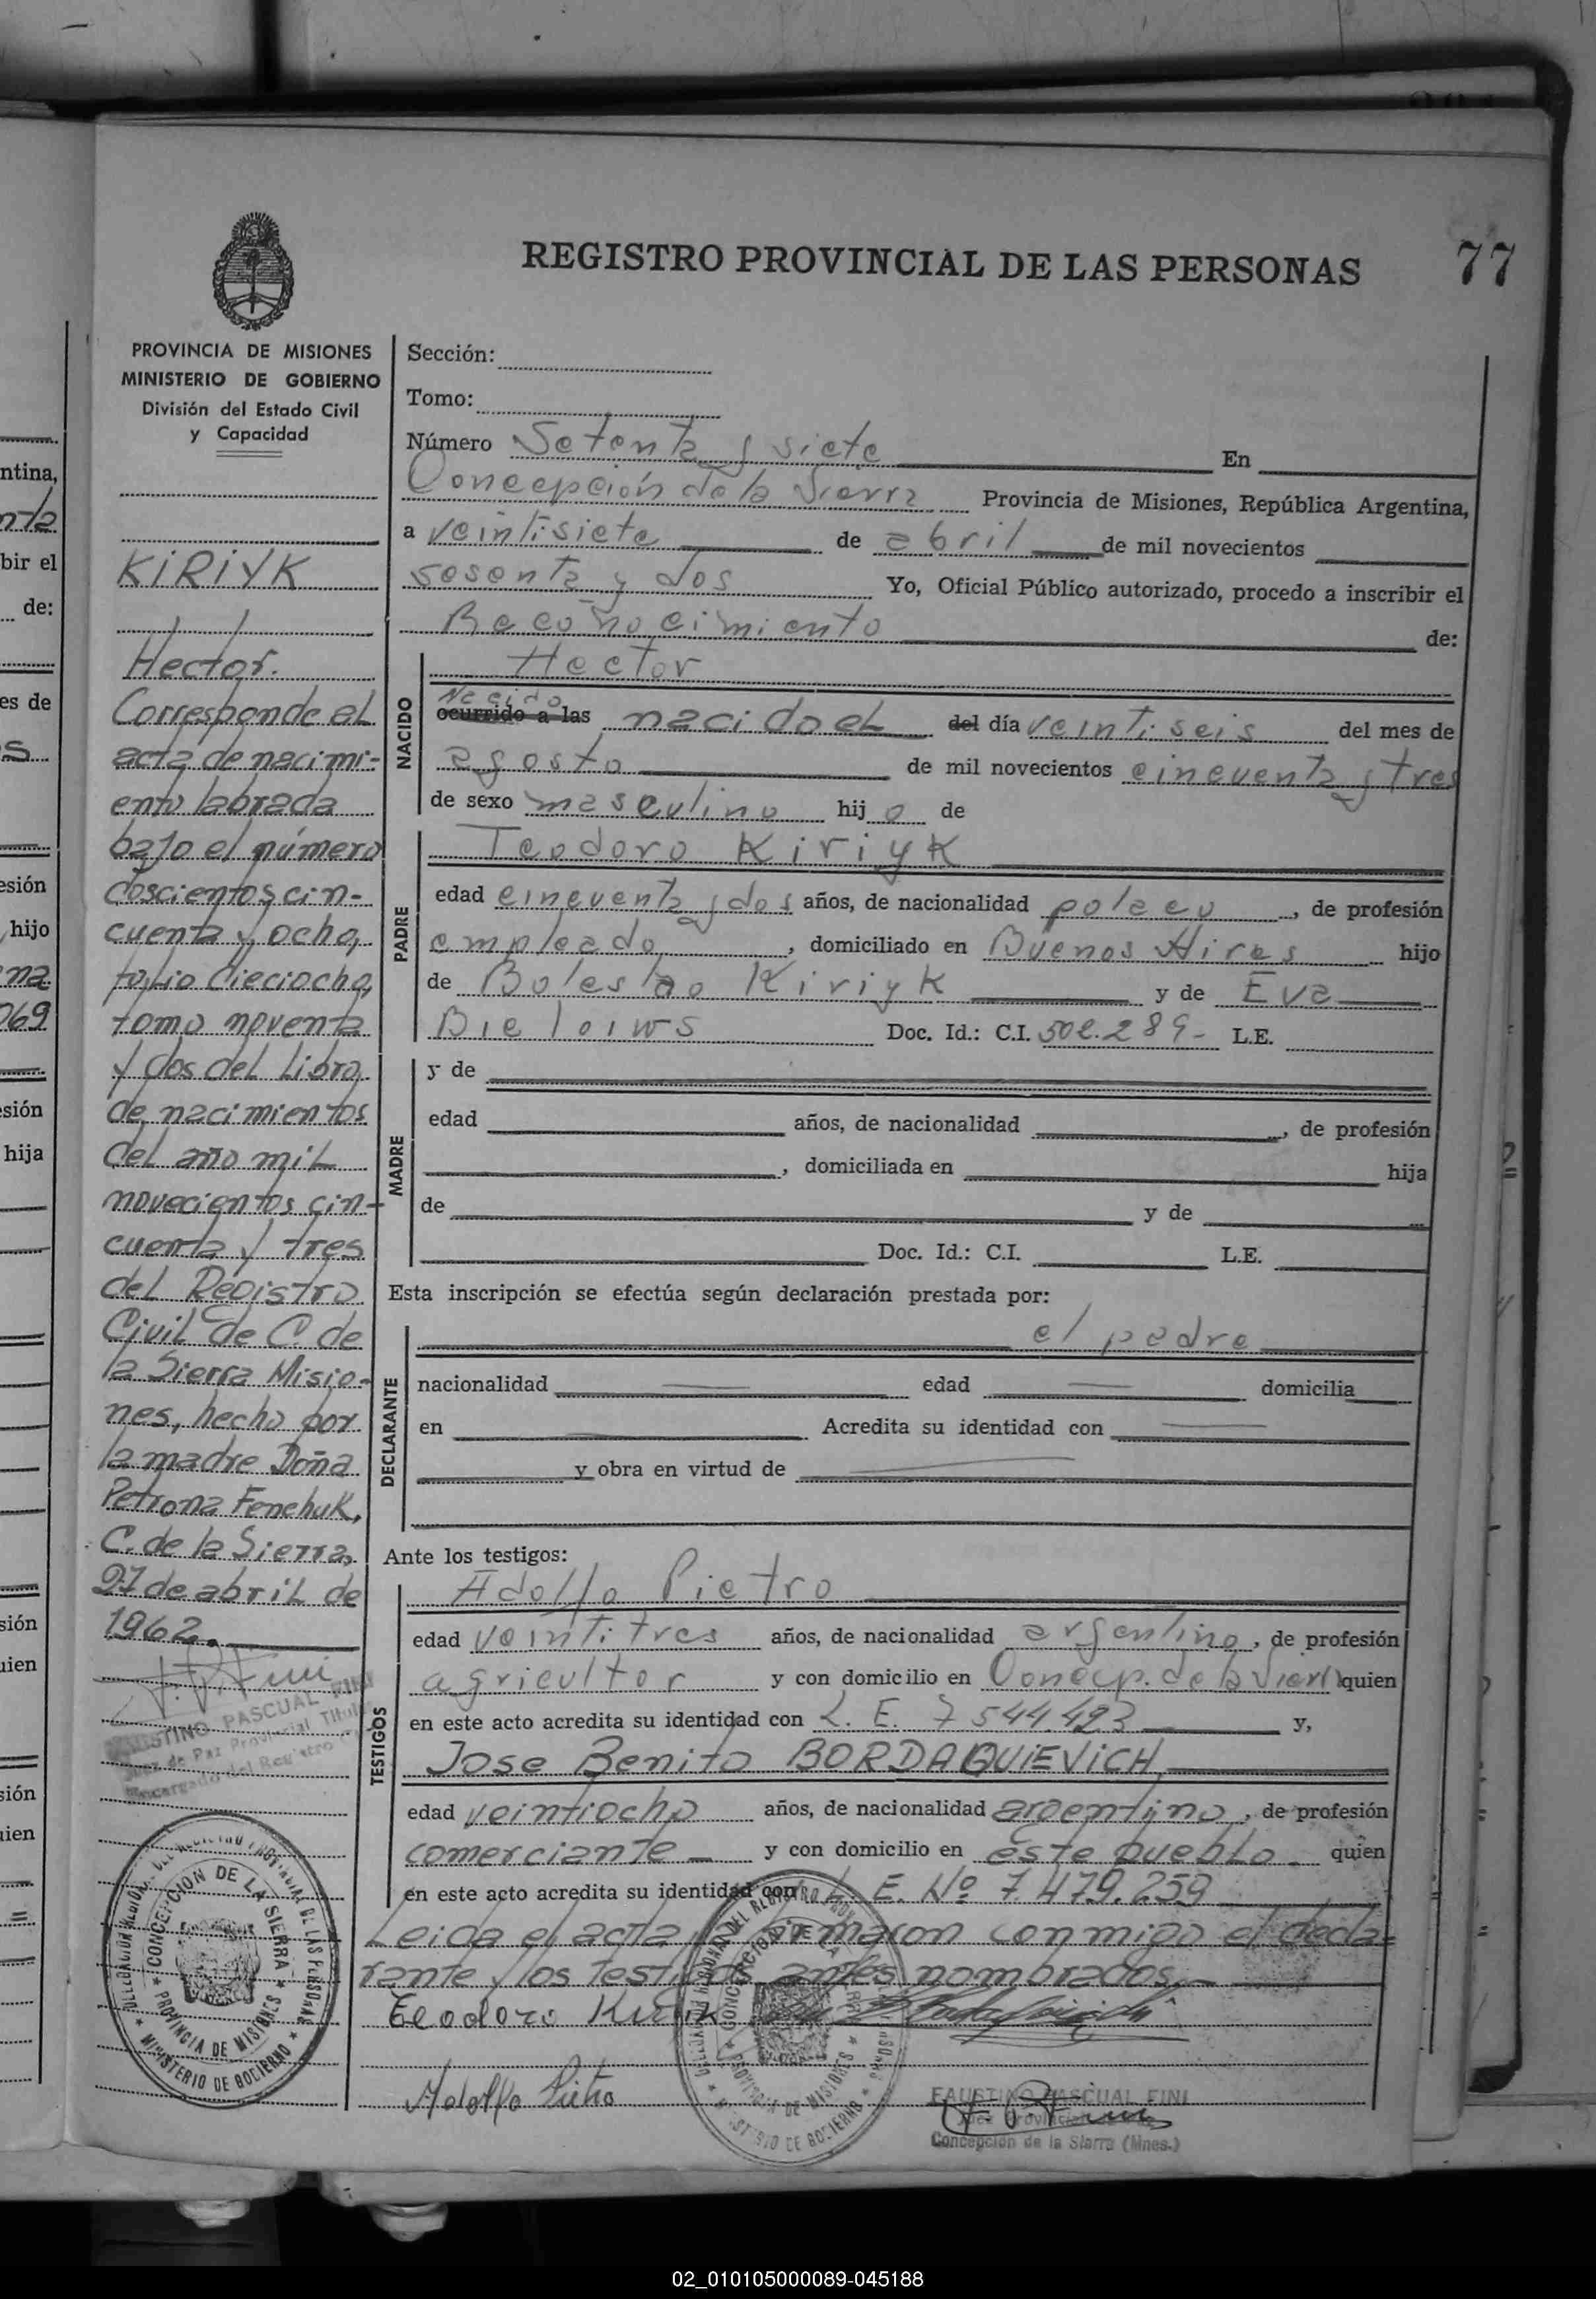 REGISTRO PROVINCIAL DE LAS PERSONAS
77
PROVINCIA DE MISIONES
MINISTERIO DE GOBIERNO
División del Estado Civil
y Capacidad
KIRIYK
Hector.
Corresponde al
acta de nacimi-
ento labrada
bajo el número
doscientos cin-
cuenta y ocho,
folio dieciocho,
tomo noventa
y dos del Libro
de nacimientos
del año mil
novecientos cin-
cuenta y tres
del Registro
Civil de C. de
la Sierra Misio-
nes, hecho por
la madre Doña
Petrona Fenchuk,
C. de la Sierra,
27 de abril de
1962.
FAUSTINO PASCUAL FINI
Juez de Paz Provincial Titular
Encargado del Registro
Sección:
Tomo:
Número Setenta y siete En
Concepción de la Sierra Provincia de Misiones, República Argentina,
a veintisiete de abril de mil novecientos
sesenta y dos Yo, Oficial Público autorizado, procedo a inscribir el
Reconocimiento de:
Hector
NACIDO
Nacido
ocurrido a las nacido el del día veintiseis del mes de
agosto de mil novecientos cincuenta y tres
de sexo masculino hijo de
PADRE
Teodoro Kiriyk
edad cincuenta y dos años, de nacionalidad polaco, de profesión
empleado, domiciliado en Buenos Aires hijo
de Boleslao Kiriyk y de Eva
Bieloiws Doc. Id.: C.I. 502.289- L.E.
MADRE
y de
edad años, de nacionalidad , de profesión
, domiciliada en hija
de y de
Doc. Id.: C.I. L.E.
Esta inscripción se efectúa según declaración prestada por:
DECLARANTE
el padre
nacionalidad edad domicilia
en Acredita su identidad con
y obra en virtud de
Ante los testigos:
TESTIGOS
Adolfo Pietro
edad veintitres años, de nacionalidad argentino, de profesión
agricultor y con domicilio en Concep. de la Sierra quien
en este acto acredita su identidad con L. E. 7544.423 y,
Jose Benito BORDAQUIEVICH
edad veintiocho años, de nacionalidad argentino, de profesión
comerciante y con domicilio en este pueblo quien
en este acto acredita su identidad con L. E. Nº 7479.259
Leida el acta la firmaron conmigo el decla-
rante y los testigos antes nombrados.
Teodoro Kiriik
Adolfo Pietro
FAUSTINO PASCUAL FINI
Juez Provincial
Concepción de la Sierra (Mnes.)
CONCEPCION DE LA SIERRA
PROVINCIA DE MISIONES
MINISTERIO DE GOBIERNO
ntina,
bir el
de:
es de
esión
hijo
na
069
esión
hija
sión
uien
sión
uien
02_010105000089-045188